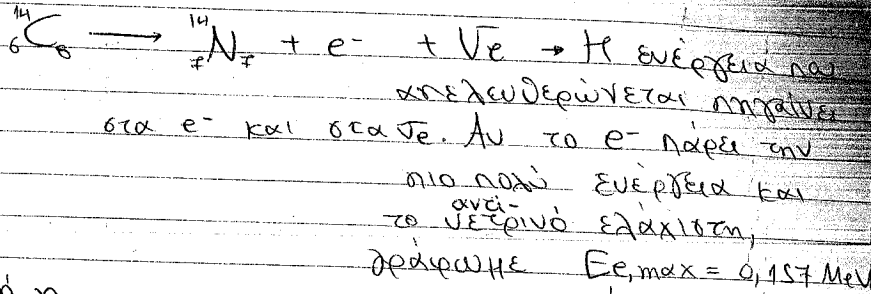 ¹⁴₆C₈ → ¹⁴₇N₇ + e⁻ + ν̅e → Η ενέργεια που
απελευθερώνεται πηγαίνει
στα e⁻ και στα ν̅e. Αν το e⁻ πάρει την
πιο πολύ ενέργεια και
αντι-
το νετρινό ελάχιστη,
γράφωμε Ee,max = 0,157 MeV